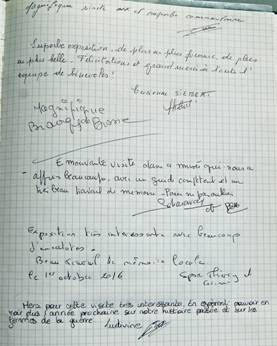 Magnifique visite
Superbe exposition, de plus en plus fournie, de plus
en plus belle. Félicitations et grand merci à toute l'
équipe de bénévoles!
Magnifique
Bravo
Emouvante visite dans ce musée qui nous a
appris beaucoup, avec un guide compétent et un
très beau travail de mémoire.
et
Exposition très intéressante avec beaucoup
d'anecdotes.
Beau travail de mémoire locale
le 1er octobre 2016
Merci pour cette visite très intéressante. En espérant pouvoir en
voir plus l'année prochaine sur notre histoire passée et sur les
femmes de la guerre.
Ludivine